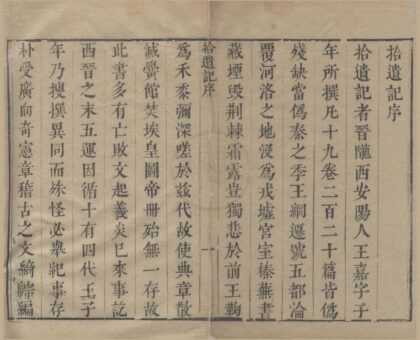 拾遺記序
拾遺記者晉隴西安陽人王嘉字子
年所撰凡十九卷二百二十篇皆爲
殘缺當僞秦之季王綱遷號五都淪
覆河洛之地沒爲戎墟宮室榛蕪書
藏堙毀荆棘霜露豈獨悲於前王鞠
拾遺記序 一
爲禾黍彌深嗟於兹代故使典章散
滅黌館焚埃皇圖帝冊殆無一存故
此書多有亡敗文起羲炎已來事訖
西晉之末五運因循十有四代王子
年乃搜撰異同而殊怪必舉紀事存
朴愛廣尚奇憲章稽古之文綺綜編